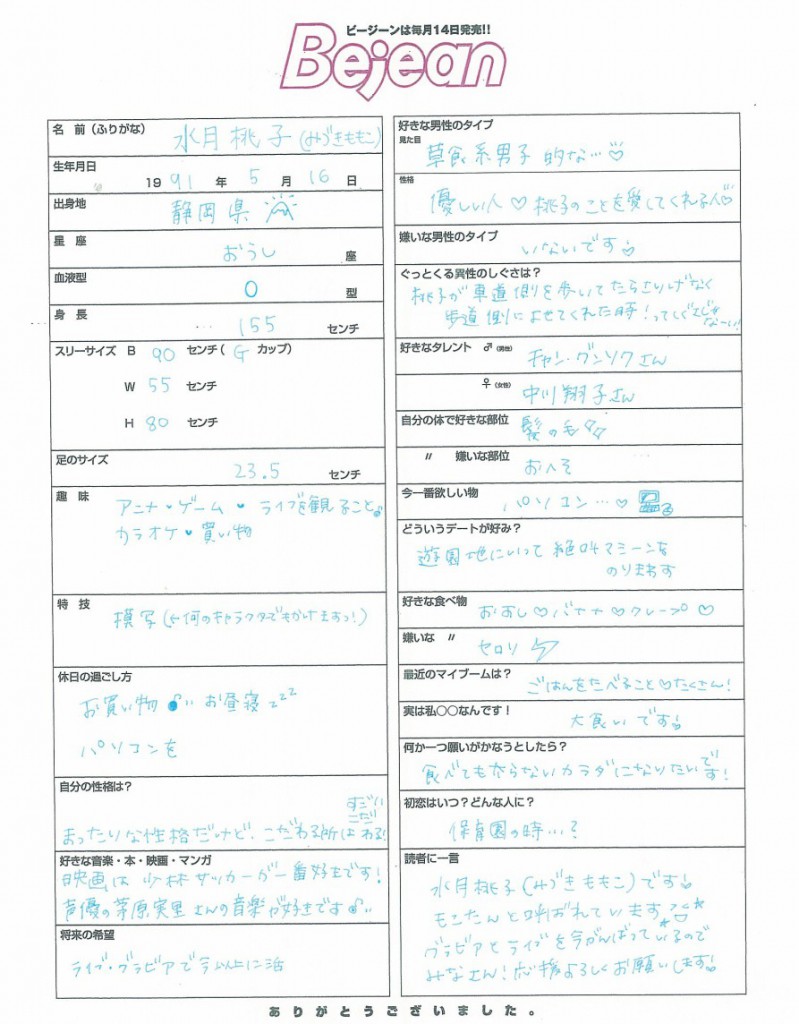 ビージーンは毎月14日発売!!
Bejean
名 前 (ふりがな) 水月桃子 (みづきももこ)
生年月日
1991年 5月 16日
出身地 静岡県
星 座 おうし 座
血液型 O 型
身 長 155 センチ
スリーサイズ B 90 センチ( G カップ)
W 55 センチ
H 80 センチ
足のサイズ 23.5 センチ
趣 味 アニメ・ゲーム・ライブを観ること
カラオケ♥買い物
特 技 模写(←何のキャラクタでもかけますっ!)
休日の過ごし方
お買い物 お昼寝zzz
パソコンを
自分の性格は?
すごい
こだ
まったりな性格だけど、こだわる所はわる!
好きな音楽・本・映画・マンガ
映画は少林サッカーが一番好きです!
声優の茅原実里さんの音楽が好きです
将来の希望
ライブ・グラビアで今以上に活
好きな男性のタイプ
見た目 草食系男子的な…♡
性格 優しい人♡桃子のことを愛してくれる人♡
嫌いな男性のタイプ
いないです
ぐっとくる異性のしぐさは?
桃子が車道側を歩いてたらさりげなく
歩道側によせてくれた時!ってしぐさじゃ
なーい!
好きなタレント ♂(男性) チャン・グンソクさん
♀(女性) 中川翔子さん
自分の体で好きな部位 髪の毛
〃 嫌いな部位 おへそ
今一番欲しい物 パソコン…♡
どういうデートが好み?
遊園地にいって絶叫マシーンを
のります
好きな食べ物 おすし♡バナナ♡クレープ♡
嫌いな 〃 セロリ
最近のマイブームは? ごはんをたべること♡たくさん!
実は私○○なんです! 大食いです
何か一つ願いがかなうとしたら?
食べても太らないカラダになりたいです!
初恋はいつ?どんな人に?
保育園の時…?
読者に一言
水月桃子(みづきももこ)です
もこたんと呼ばれています
グラビアとライブを今がんばっているので
みなさん!応援よろしくお願いします!
ありがとうございました。